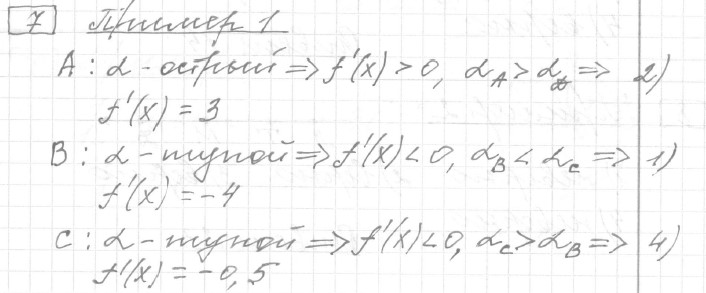 7 Пример 1
A: α - острый => f'(x) > 0, α_A > α_D => 2)
f'(x) = 3
B: α - тупой => f'(x) < 0, α_B < α_C => 1)
f'(x) = -4
C: α - тупой => f'(x) < 0, α_C > α_B => 4)
f'(x) = -0,5